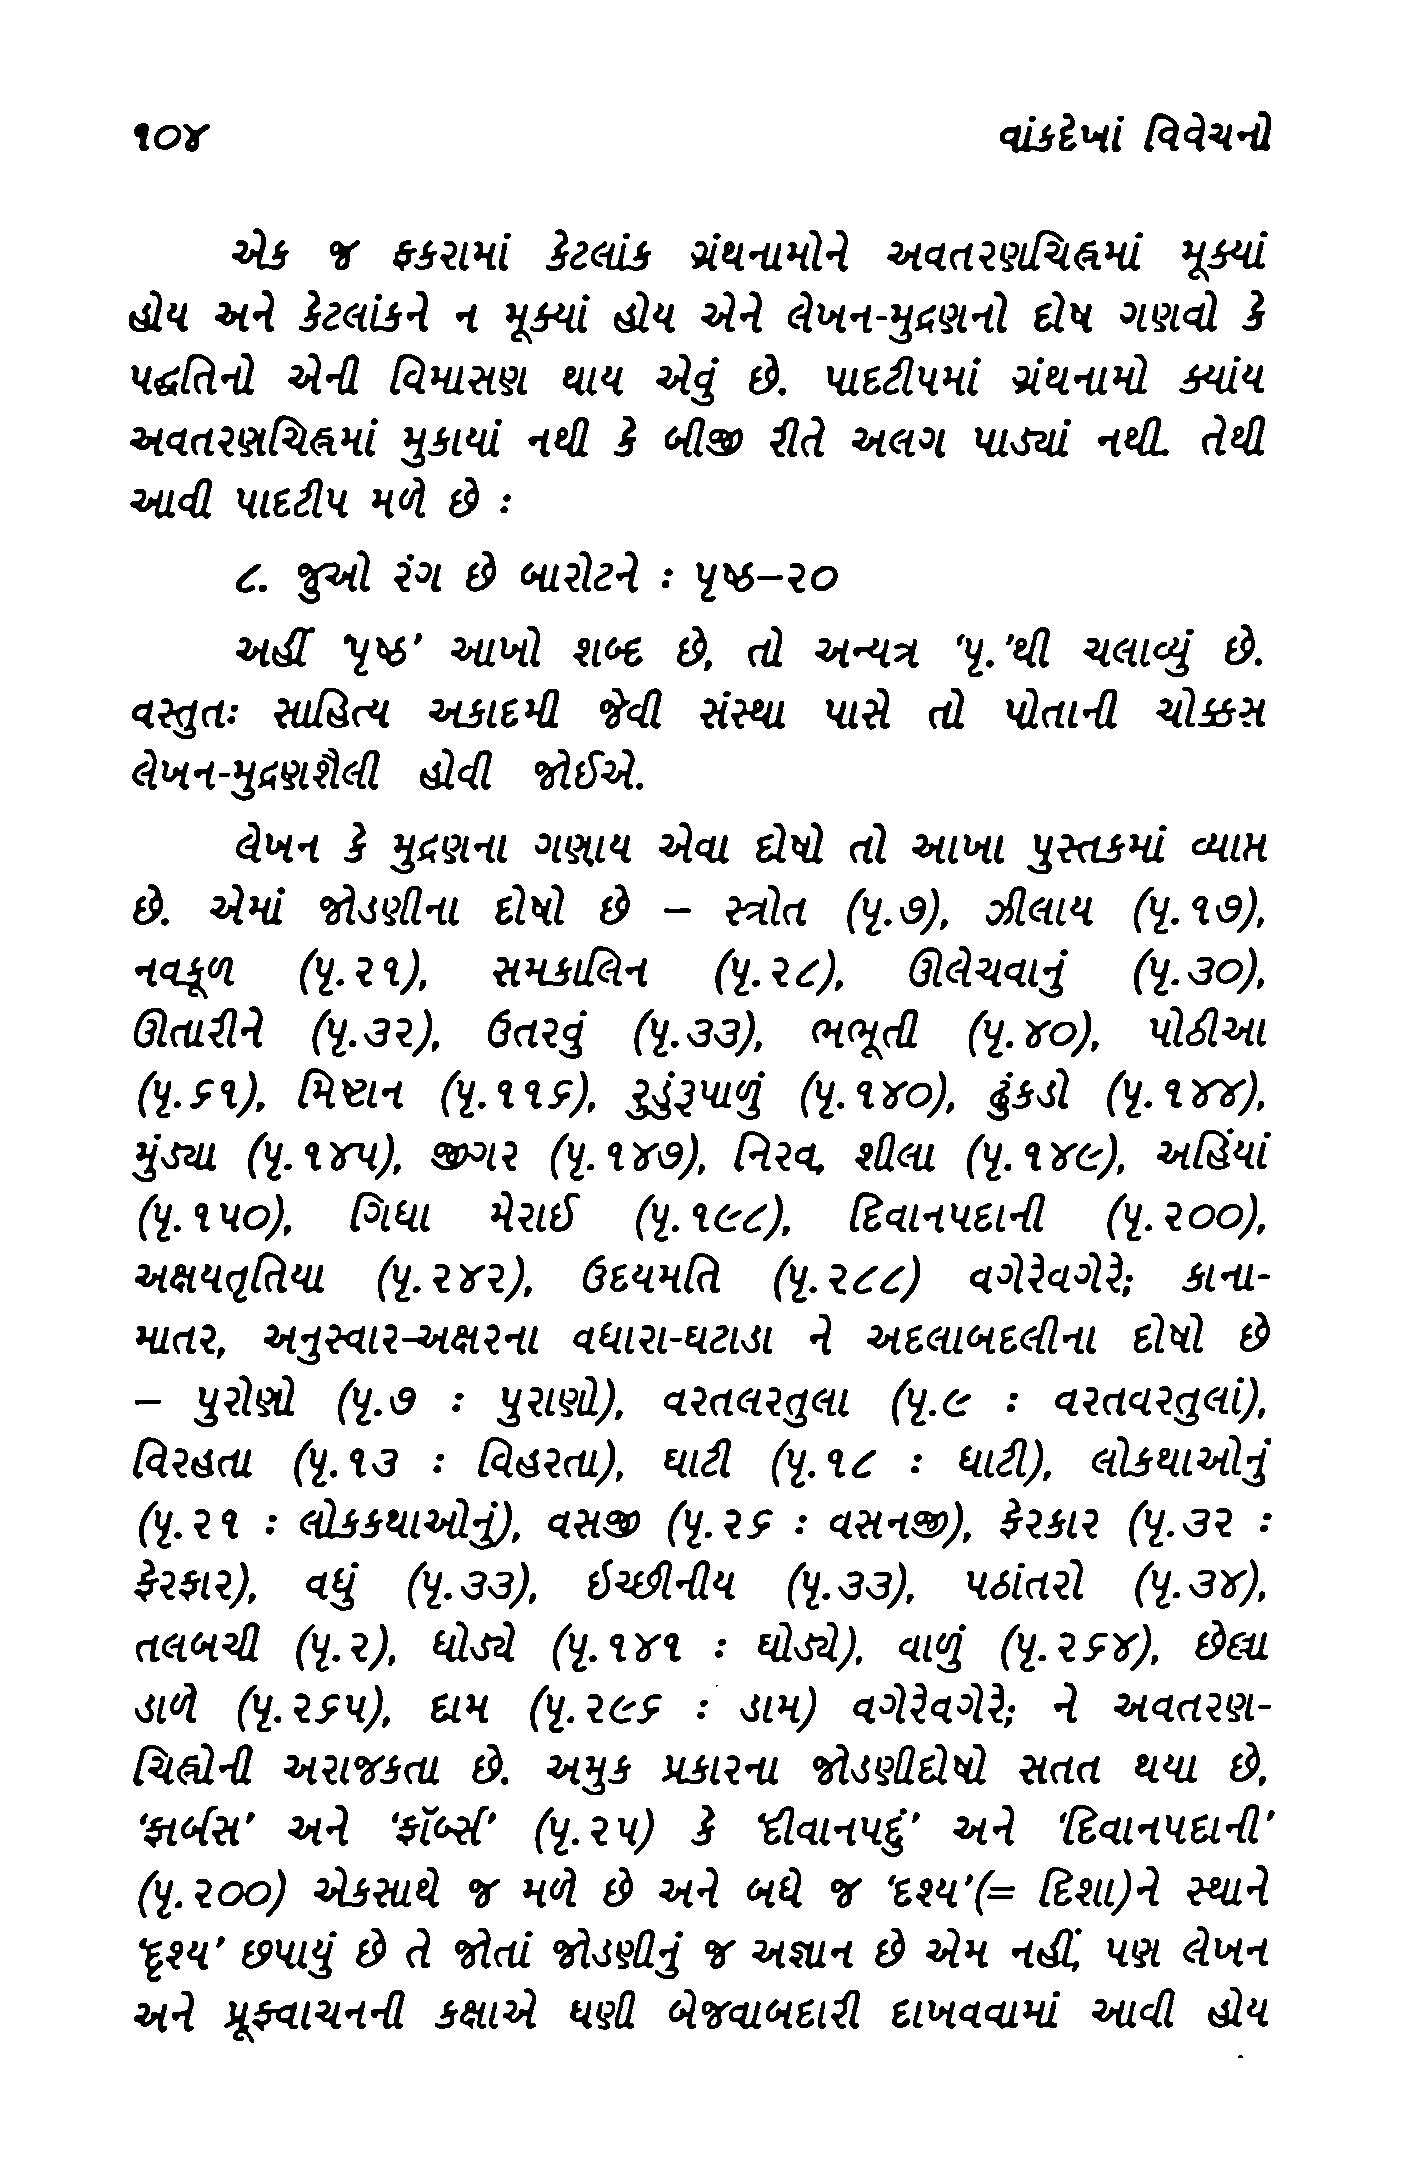 ૧૦૪ વાંકદેખાં વિવેચનો
એક જ ફકરામાં કેટલાંક ગ્રંથનામોને અવતરણચિહ્નમાં મૂક્યાં
હોય અને કેટલાંકને ન મૂક્યાં હોય એને લેખન-મુદ્રણનો દોષ ગણવો કે
પદ્ધતિનો એની વિમાસણ થાય એવું છે. પાદટીપમાં ગ્રંથનામો ક્યાંય
અવતરણચિહ્નમાં મુકાયાં નથી કે બીજી રીતે અલગ પાડ્યાં નથી. તેથી
આવી પાદટીપ મળે છે :
૮. જુઓ રંગ છે બારોટને : પૃષ્ઠ–૨૦
અહીં ‘પૃષ્ઠ’ આખો શબ્દ છે, તો અન્યત્ર ‘પૃ.’થી ચલાવ્યું છે.
વસ્તુતઃ સાહિત્ય અકાદમી જેવી સંસ્થા પાસે તો પોતાની ચોક્કસ
લેખન-મુદ્રણશૈલી હોવી જોઈએ.
લેખન કે મુદ્રણના ગણાય એવા દોષો તો આખા પુસ્તકમાં વ્યાપ્ત
છે. એમાં જોડણીના દોષો છે – સ્ત્રોત (પૃ.૭), ઝીલાય (પૃ.૧૭),
નવકૂળ (પૃ.૨૧), સમકાલિન (પૃ.૨૮), ઊલેચવાનું (પૃ.૩૦),
ઊતારીને (પૃ.૩૨), ઉતરવું (પૃ.૩૩), ભભૂતી (પૃ.૪૦), પોઠીઆ
(પૃ.૬૧), મિષ્ટાન (પૃ.૧૧૬), રુડુંરૂપાળું (પૃ.૧૪૦), ઢુંકડો (પૃ.૧૪૪),
મુંડ્યા (પૃ.૧૪૫), જીગર (પૃ.૧૪૭), નિરવ, શીલા (પૃ.૧૪૯), અહિંયાં
(પૃ.૧૫૦), ગિધા મેરાઈ (પૃ.૧૯૮), દિવાનપદાની (પૃ.૨૦૦),
અક્ષયતૃતિયા (પૃ.૨૪૨), ઉદયમતિ (પૃ.૨૮૮) વગેરેવગેરે; કાના-
માતર, અનુસ્વાર-અક્ષરના વધારા-ઘટાડા ને અદલાબદલીના દોષો છે
– પુરોણો (પૃ.૭ : પુરાણો), વરતલરતુલા (પૃ.૯ : વરતવરતુલાં),
વિરહતા (પૃ.૧૩ : વિહરતા), ઘાટી (પૃ.૧૮ : ધાટી), લોકથાઓનું
(પૃ.૨૧ : લોકકથાઓનું), વસજી (પૃ.૨૬ : વસનજી), ફેરકાર (પૃ.૩૨ :
ફેરફાર), વધું (પૃ.૩૩), ઇચ્છીનીય (પૃ.૩૩), પઠાંતરો (પૃ.૩૪),
તલબચી (પૃ.૨), ધોડ્યે (પૃ.૧૪૧ : ઘોડ્યે), વાળું (પૃ.૨૬૪), છેલ્લા
ડાળે (પૃ.૨૬૫), દામ (પૃ.૨૯૬ : ડામ) વગેરેવગેરે; ને અવતરણ-
ચિહ્નોની અરાજકતા છે. અમુક પ્રકારના જોડણીદોષો સતત થયા છે,
‘ફાર્બસ’ અને ‘ફૉર્બ્સ’ (પૃ.૨૫) કે ‘દીવાનપદું’ અને ‘દિવાનપદાની’
(પૃ.૨૦૦) એકસાથે જ મળે છે અને બધે જ ‘દશ્ય’(= દિશા)ને સ્થાને
‘દૃશ્ય’ છપાયું છે તે જોતાં જોડણીનું જ અજ્ઞાન છે એમ નહીં, પણ લેખન
અને પ્રૂફવાચનની કક્ષાએ ઘણી બેજવાબદારી દાખવવામાં આવી હોય